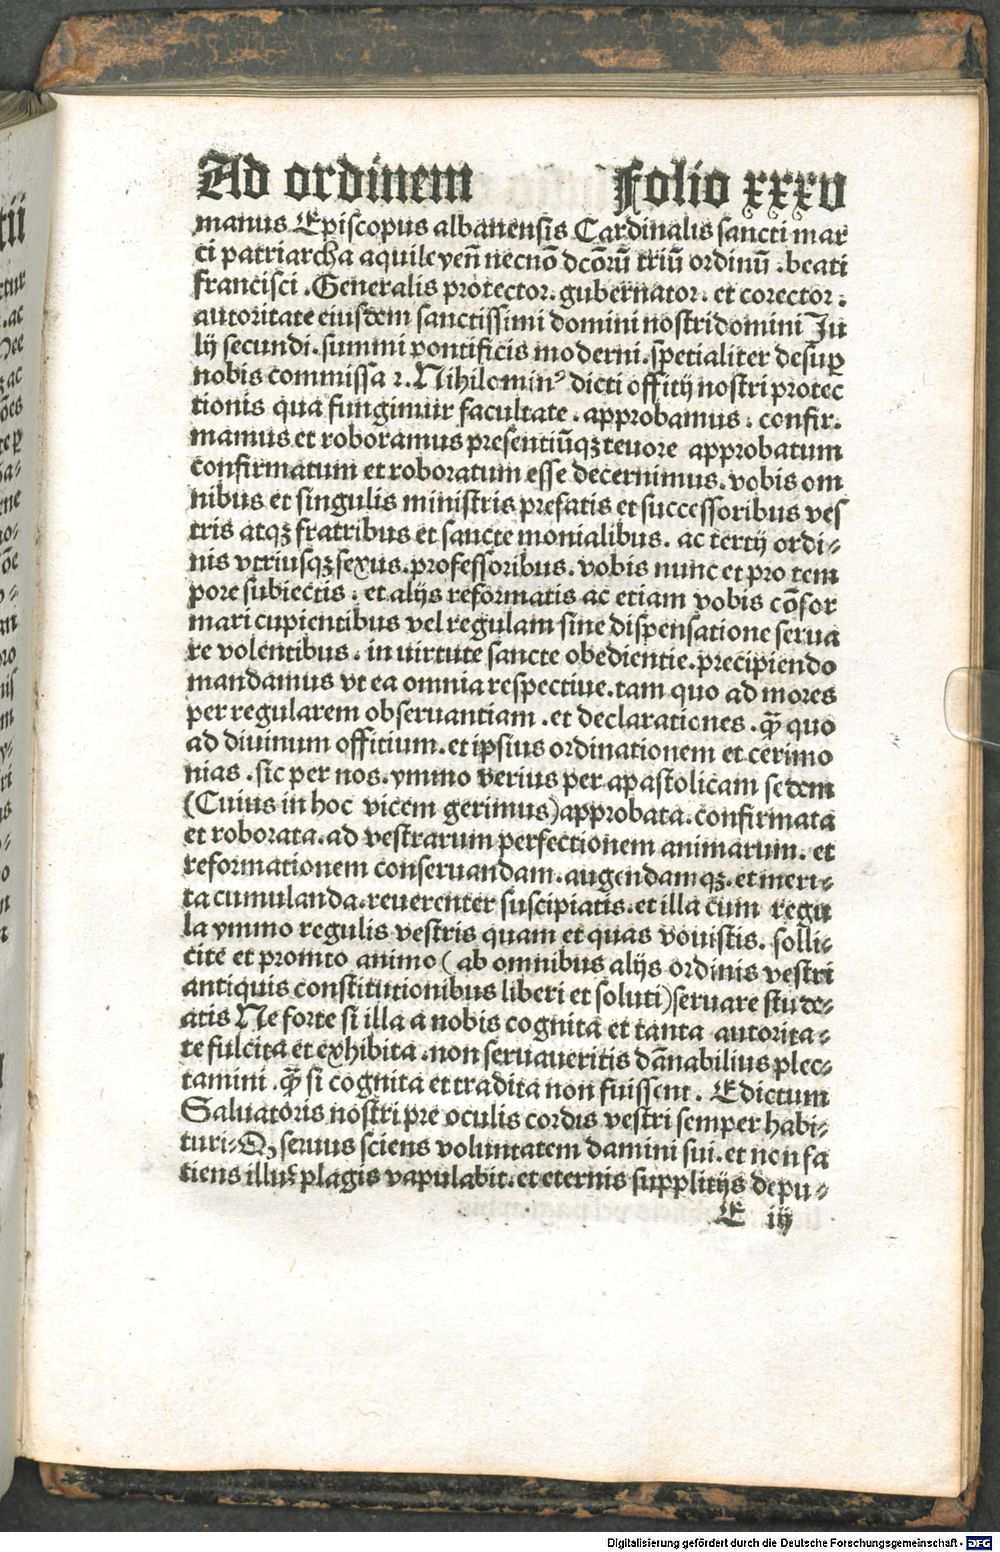 Ad ordinem Folio xxxv
manus Episcopus albanensis Cardinalis sancti mar
ci patriarcha aquileyeñ necnō dcōrū triū ordinū . beati
francisci . Generalis protector . gubernator . et corector .
autoritate eiusdem sanctissimi domini nostri domini Ju
lij secundi . summi pontificis moderni . spetialiter desuꝑ
nobis commissa ⁊ . Nihilominꝰ dicti offitij nostri protec
tionis qua fungimur facultate . approbamus . confir-
mamus et roboramus presentiūqꝫ teuore approbatum
confirmatum et roboratum esse decernimus . vobis om
nibus et singulis ministris prefatis et successoribus ves
tris atqꝫ fratribus et sancte monialibus . ac tertij ordi-
nis vtriusqꝫ sexus . professoribus . vobis nunc et pro tem
pore subiectis . et alijs reformatis ac etiam vobis cōfor
mari cupientibus vel regulam sine dispensatione serua
re volentibus . in uirtute sancte obedientie . precipiendo
mandamus vt ea omnia respectiue . tam quo ad mores
per regularem obseruantiam . et declarationes . q̄ȝ quo
ad diuinum offitium . et ipsius ordinationem et cerimo
nias . sic per nos . ymmo verius per apastolicam sedem
(Cuius in hoc vicem gerimus) approbata . confirmata
et roborata . ad vestrarum perfectionem animarum . et
reformationem conseruandam . augendamqꝫ . et meri-
ta cumulanda . reuerenter suscipiatis . et illa cum regu
la ymmo regulis vestris quam et quas vouistis . solli-
cite et promto animo (ab omnibus alijs ordinis vestri
antiquis constitutionibus liberi et soluti) seruare stude-
atis Ne forte si illa a nobis cognita et tanta autorita-
te fulcita et exhibita . non seruaueritis dānabilius plec-
tamini . q̄ȝ si cognita et tradita non fuissent . Edictum
Saluatoris nostri pre oculis cordis vestri semper habi-
turi . Qꝫ seruus sciens voluntatem damini sui . et non fa
tiens illuꝫ plagis vapulabit . et eternis supplitijs depu-
E iij
Digitalisierung gefördert durch die Deutsche Forschungsgemeinschaft - DFG